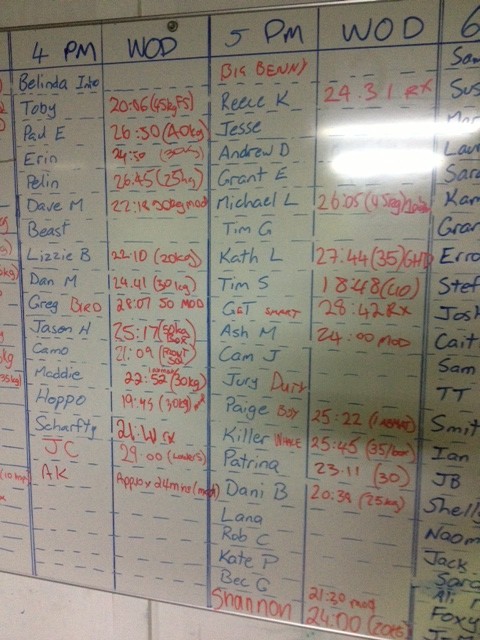 4 PM WOD 5 PM WOD 6
Belinda Into BIG BENNY
Toby 20:06 (45kg FS) Reece K 24.31 RX
Paul E 26:50 (40kg) Jesse
Erin 24:50 Andrew D
Pelin 26:45 (25kg) Grant E
Dave M 22:18 50kg mod Michael L 26:05 (45kg)
Beast Tim G
Lizzie B 22:10 (20kg) Kath L 27:44 (35) GHD Erro
Dan M 29.41 (30kg) Tim S 18:48 (40) Stef
Greg BIRD 28:07 50 MOD GET SMART 28:42 RX Josh
Jason H 25:17 (50kg BOX Ash M 24:00 MOD Cait
Camo 21:09 Cam J Sam
Maddie 22:52 (30kg) Jury Duty TT
Hoppo 19:45 (30kg) Paige BOY 25:22 Smit
Scharfty 21:40 rx Killer WHALE 25:45 (35/box) Ian
JC 29:00 Patrina 23:11 (30) JB
AK Approx 24mins (mod) Dani B 20:39 (25kg) Shelly
Lana Naom
Rob C Jack
Kate P Sara
Bec G 21:20 mod Ali
Shannon 24:00 Foxy